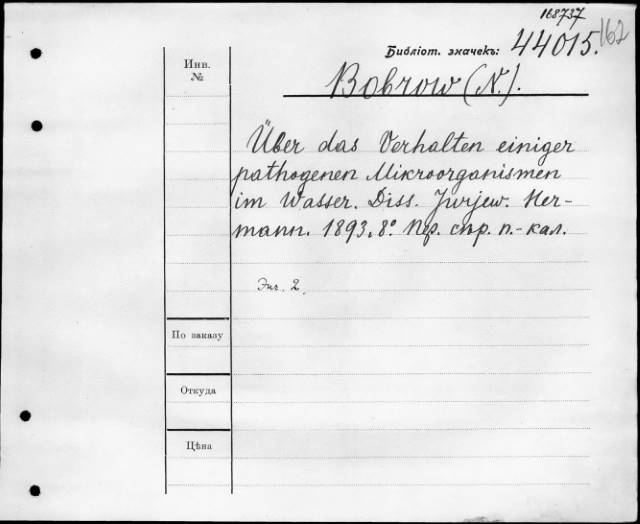 168737
162
Библіот. значекъ: 44015.
Инв.
№
Bobrow (N.).
Über das Verhalten einiger
pathogenen Mikroorganismen
im Wasser. Diss. Jurjew. Her-
mann. 1893. 8º. Пер. стр. п.-кал.
2.
По заказу
Откуда
Цѣна